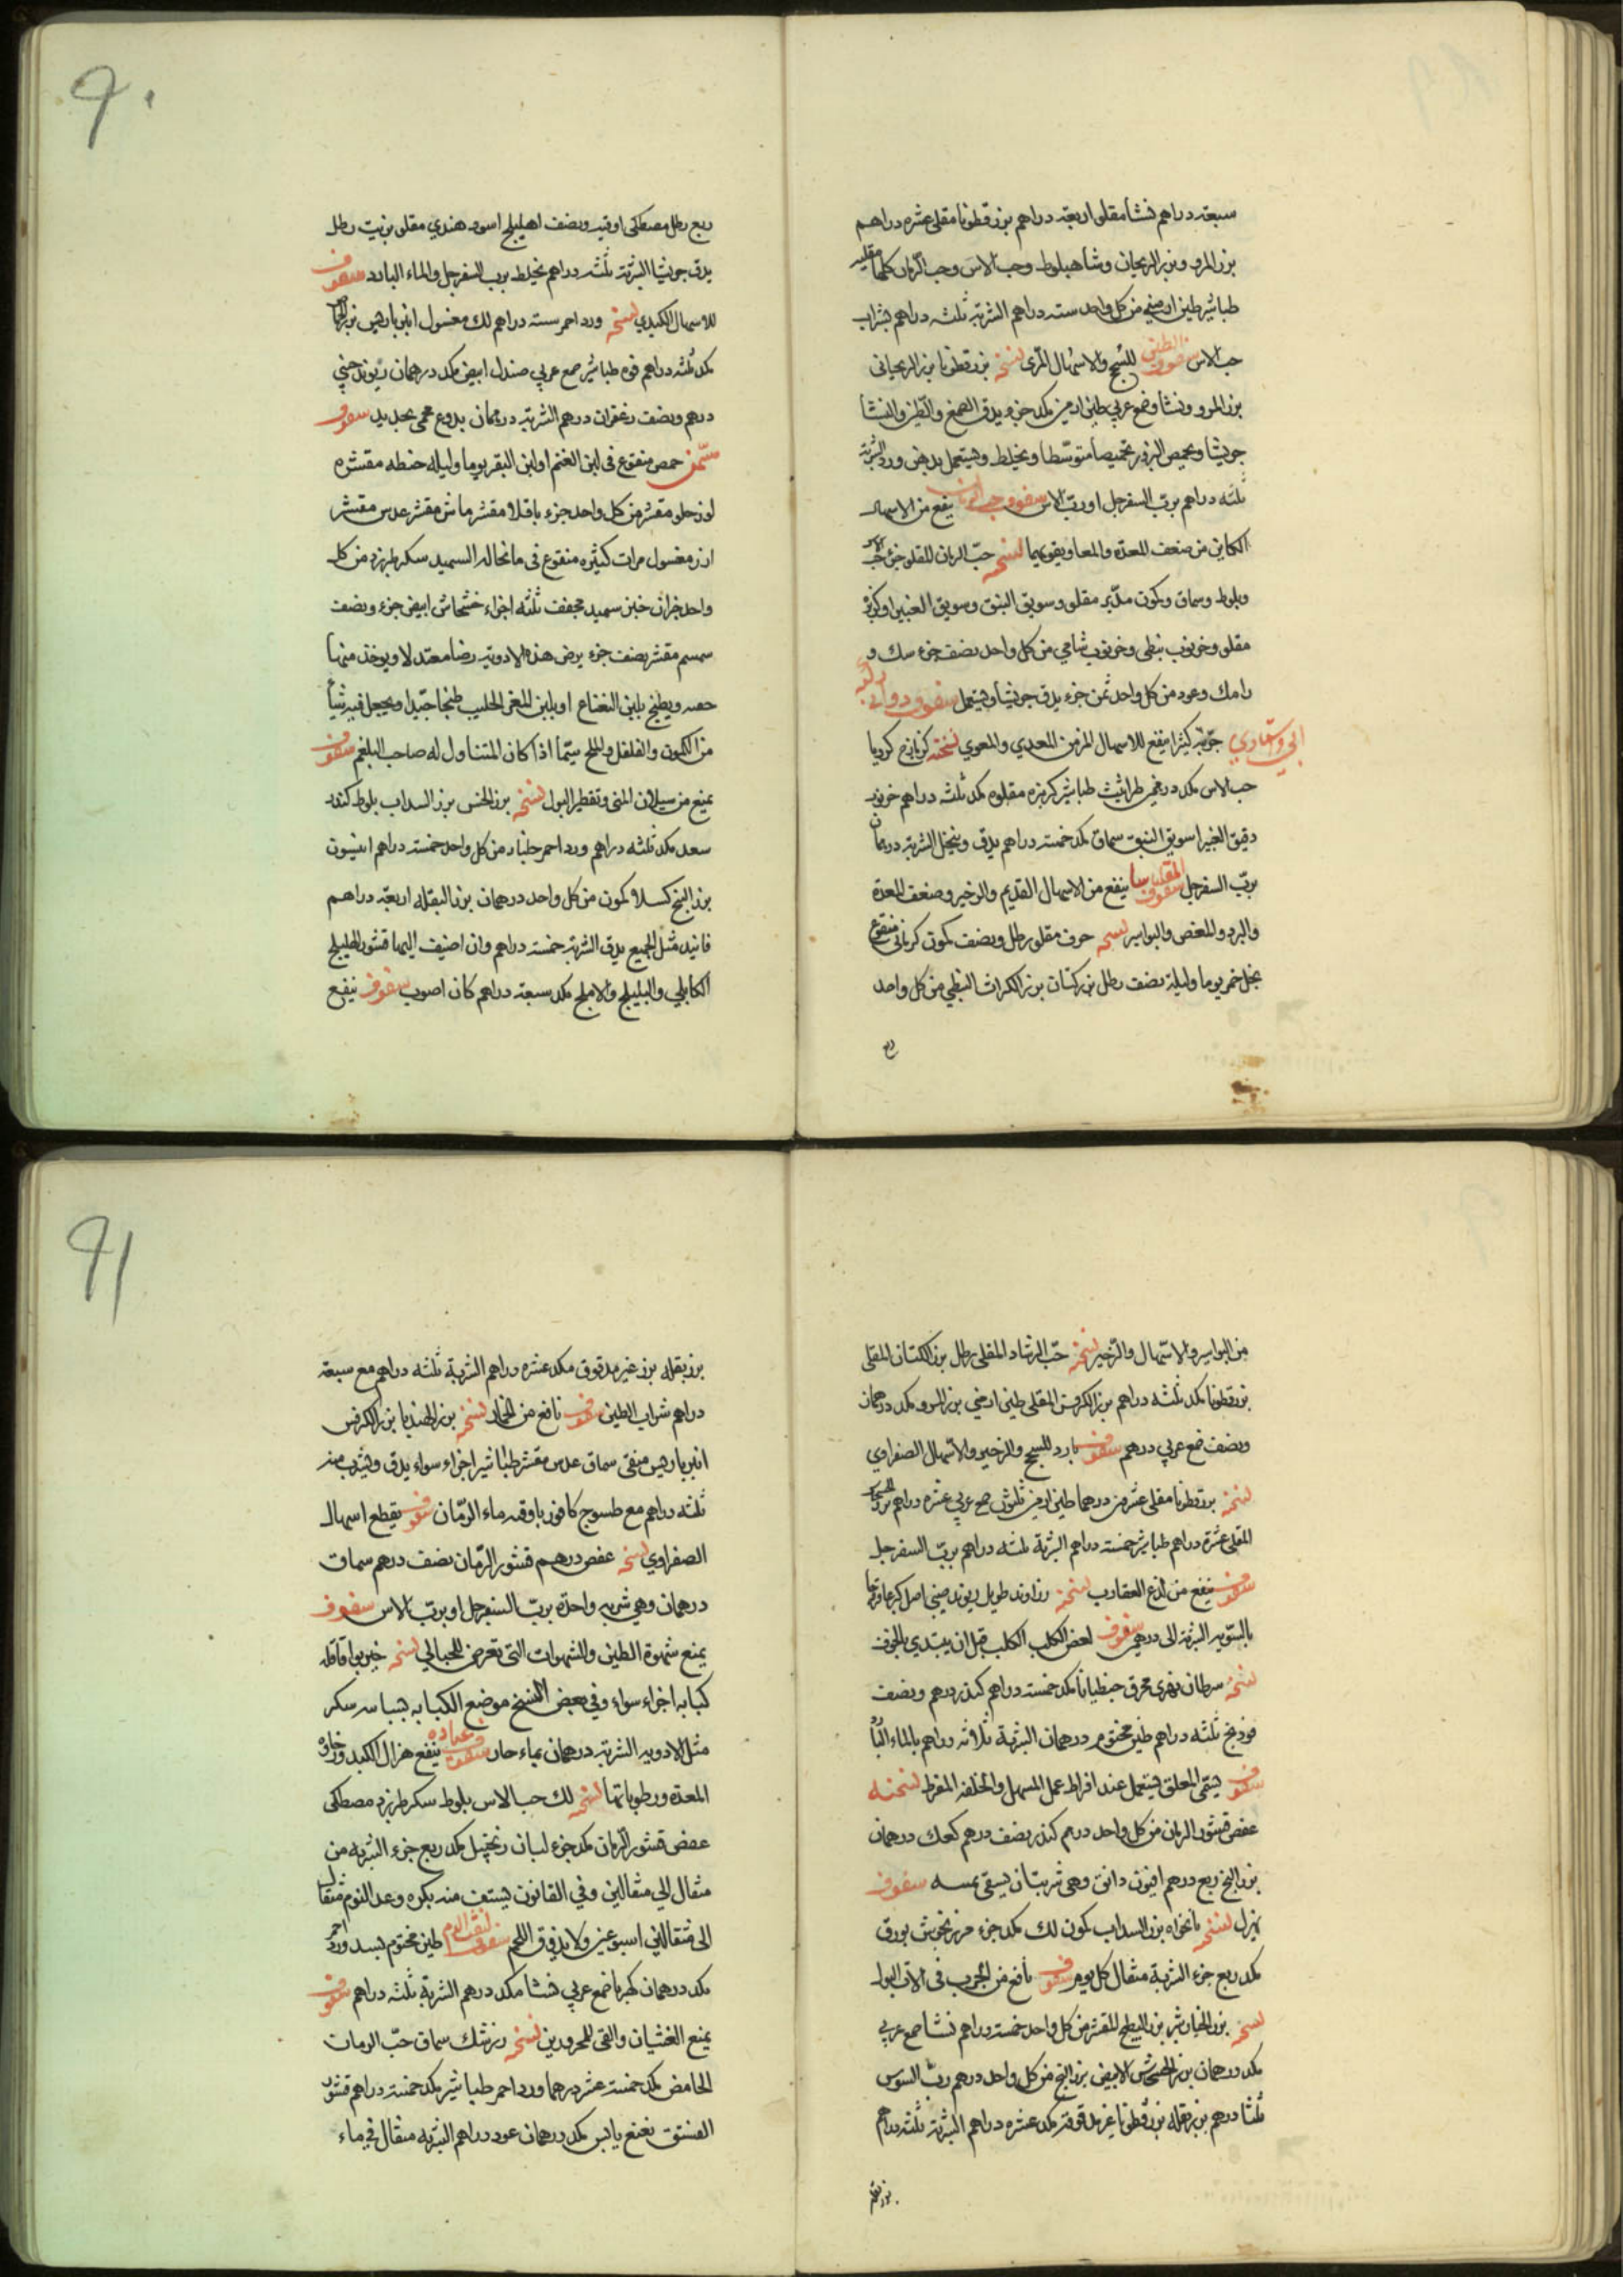 سبعة دراهم نشا مقلو اربعة دراهم بزرقطونا مقلى عشره دراهم
بزر المرو وبزر الريحان وشاهبلوط وحب الاس وحب الرمان كلها مقليه
طباشير طين ارمني من كل واحد سته دراهم الشربة ثلثه دراهم بشراب
حب الاس سفوف الطين للسحج والاسهال المرى نسخه بزرقطونا بزر الريحانى
بزر المرو ونشا وصمغ عربي طين ارمني مكد جزء يدق الصمغ والطين والنشا
جريشا ويحمص البزور تحميصا متوسطا ويخلط ويستعمل بدهن ورد الشربة
ثلثه دراهم برب السفرجل او رب الاس سفوف حب الرمان ينفع من الاسهال
الكاين من ضعف المعدة والمعا ويقويها نسخه حب الرمان المقلو جزء حب الاس
وبلوط وسماق وكمون مدبر مقلو وسويق النبق وسويق الغبيرا وكزبره
مقلو وخرنوب نبطى وخرنوب شامي من كل واحد نصف جزء سك و
رامك وعود من كل واحد ثمن جزء يدق جريشا ويستعمل سفوف دوا
جربته كثيرا ينفع للاسهال المزمن المعدي والمعوي نسخته كزمازج كرويا
حب الاس مكد درهمي طراثيث طباشير كزبره مقلوه مكد ثلثه دراهم خرنوب
دقيق الغبيرا سويق النبق سماق مكد خمسة دراهم يدق وينخل الشربة درهمان
برب السفرجل سفوف المقلياثا ينفع من الاسهال القديم والزحير وضعف المعدة
والبرد والمغص والبواسير نسخه حرف مقلو رطل ونصف كمون كرمانى منقوع
بخل خمر يوما وليلة نصف رطل بزر كتان بزر الكراث النبطي من كل واحد
ربع
ربع رطل مصطكى اوقيه ونصف اهليلج اسود هندي مقلو بزيت رطل
يدق جريشا الشربة ثلثه دراهم يخلط برب السفرجل والماء البارد سفوف
للاسهال الكبدي نسخه ورد احمر سته دراهم لك مغسول انبرباريس بزر
مكد ثلثه دراهم فوه طباشير صمغ عربي صندل ابيض مكد درهمان ريوند صيني
درهم ونصف زعفران درهم الشربة درهمان بدوغ محمى بحديد سفوف
مسمن حمص منقوع في لبن الغنم او لبن البقر يوما وليله حنطه مقشره
لوز حلو مقشر من كل واحد جزء باقلا مقشر ماش مقشر عدس مقشر
ارز مغسول مرات كثيره منقوع في ما نخاله السميد سكر طبرزد من كل
واحد جزان خبز سميد مجفف ثلثه اجزاء خشخاش ابيض جزء ونصف
سمسم مقشر نصف جزء يرض هذه الادوية رضا معتدلا ويوخذ منها
حصه ويطبخ بلبن النعاج او بلبن المعز الحليب طبخا جيدا ويجعل فيه شيأ
من الكمون والفلفل والملح سيما اذا كان المتناول له صاحب البلغم سفوف
يمنع من سيلان المنى وتقطير البول نسخه بزر الخس بزر السداب بلوط كندر
سعد مكد ثلثه دراهم ورد احمر جلنار من كل واحد خمسة دراهم انيسون
بزر البنج كسيلا كمون من كل واحد درهمان بزر البقله اربعة دراهم
فانيد مثل الجميع يدق الشربة خمسة دراهم وان اضيف اليها قشور الهليلج
الكابلي والبليلج والاملج مكد سبعة دراهم كان اصوب سفوف ينفع
من البواسير والاسهال والزحير نسخه حب الرشاد المقلى رطل بزر الكتان المقلى
بزرقطونا مكد ثلثه دراهم بزر الكرفس المقلى طين ارمني بزر المرو مكد درهمان
ونصف صمغ عربي درهم سفوف بارد للسحج والزحير والاسهال الصفراوي
نسخه بزرقطونا مقلى عشرين درهما طين ارمني ثلثون صمغ عربي عشره دراهم بزر
المقلى عشرة دراهم طباشير خمسة دراهم الشربة ثلثه دراهم برب السفرجل
سفوف ينفع من لدغ العقارب نسخه زراوند طويل ريوند صيني اصل كبر عاقرقرحا
بالسويه الشربة الى درهمين سفوف لعض الكلب الكلب قبل ان يبتدي بالخوف
نسخه سرطان نهري محرق جنطيانا مكد خمسة دراهم كندر درهم ونصف
فوذنج ثلثه دراهم طين مختوم درهمان الشربة ثلاثه دراهم بالماء البارد
سفوف يسمى المعلق يستعمل عند افراط عمل المسهل والخلفه المفرط نسخته
عفص قشور الرمان من كل واحد درهم كندر نصف درهم كعك درهمان
بزر البنج ربع درهم افيون دانق وهي شربتان يسقى سفوف
يهزل نسخه نانخواه بزر السداب كمون لك مكد جزء مرزنجوش بورق
مكد ربع جزء الشربة مثقال كل يوم سفوف نافع من الجرب في الات البول
نسخه بزر الخيار بزر البطيخ المقشر من كل واحد خمسة دراهم نشا صمغ عربي
مكد درهمان بزر الخشخاش الابيض بزر البنج من كل واحد درهم رب السوس
ثلثا درهم بزر بقله بزرقطونا غير مدقوقه مكد عشره دراهم الشربة ثلثه دراهم
بزر بقله
بزر بقله بزر غير مدقوق مكد عشره دراهم الشربة ثلثه دراهم مع سبعة
دراهم شراب الطين سفوف نافع من الخمار نسخه بزر الهندبا بزر الكرفس
انبرباريس منقى سماق عدس مقشر طباشير اجزاء سواء يدق ويشرب منه
ثلثه دراهم مع طسوج كافور باوقيه ماء الرمان سفوف يقطع اسهال
الصفراوي نسخه عفص درهم قشور الرمان نصف درهم سماق
درهمان وهي شربه واحدة برب السفرجل او برب الاس سفوف
يمنع شهوة الطين والشهوات التي تعرض للحبالي نسخه خيربوا قاقله
كبابه اجزاء سواء وفي بعض النسخ موضع الكبابه بسباسه سكر
مثل الادويه الشربة درهمان بماء حار سفوف عباده ينفع هزال الكبد ورخاوة
المعدة ورطوباتها نسخه لك حب الاس بلوط سكر طبرزد مصطكى
عفص قشور الرمان مكد جزء لبان زنجبيل مكد ربع جزء الشربه من
مثقال الي مثقالين وفي القانون يستف منه بكره وعند النوم مثقال
الى مثقالين اسبوعين ولا يذوق اللحم سفوف لنفث الدم طين مختوم بسد ورد احمر
مكد درهمان كهربا صمغ عربي نشا مكد درهم الشربة ثلثه دراهم سفوف
يمنع الغثيان والقى للمحرورين نسخه زرشك سماق حب الرمان
الحامض مكد خمسة عشر درهما ورد احمر طباشير مكد خمسة دراهم قشور
الفستق نعنع يابس مكد درهمان عود دراهم الشربه مثقال في ماء
٩٠
٩١